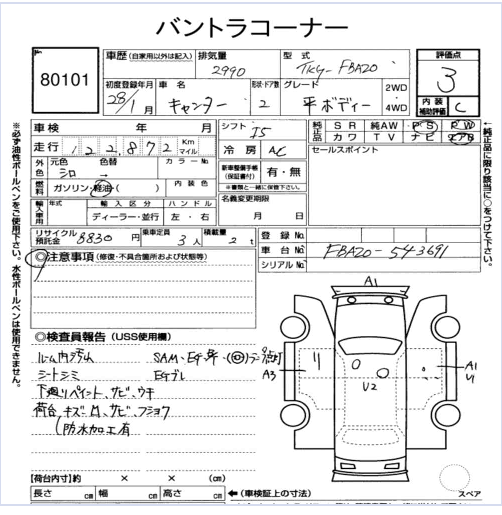 バントラコーナー
No.
80101
車歴 (自家用以外は記入)
排気量
2990
型式
TKG-FBA20
評価点
3
内装補助評価
C
初度登録年月
28/1月
車名
キャンター
形状・ドア数
2
グレード
平ボディー
2WD
4WD
車検 年 月
シフト
I5
純正品
SR 純AW PS PW
カワ TV ナビ
走行 122,872 Km マイル
冷房 AC
セールスポイント
外色
元色
シロ
色替
→
カラーNo.
新車整備手帳(保証書付) 有・無
※書類と一緒に保管下さい。
燃料
ガソリン・軽油・( )
内装色
名義変更期限
月 日
輸入車用
年式
輸入区分
ディーラー・並行
ハンドル
左・右
リサイクル預託金 8830 円
乗車定員 3人
積載量 2t
登録No.
車台No. FBA20-543691
シリアルNo.
◎注意事項 (修復・不具合箇所および状態等)
◎検査員報告 (USS使用欄)
シートシミ
下廻りペイント、サビ、ウキ
荷台 キズ凹、サビ、フショク
(防水加工有
A1
A3
U2
A1
U1
【荷台内寸】約 × × (cm)
長さ cm 幅 cm 高さ cm
←(車検証上の寸法)
スペア
※必ず油性ボールペンをご使用下さい。水性ボールペンは使用できません。
←純正品に限り該当に○をつけて下さい。